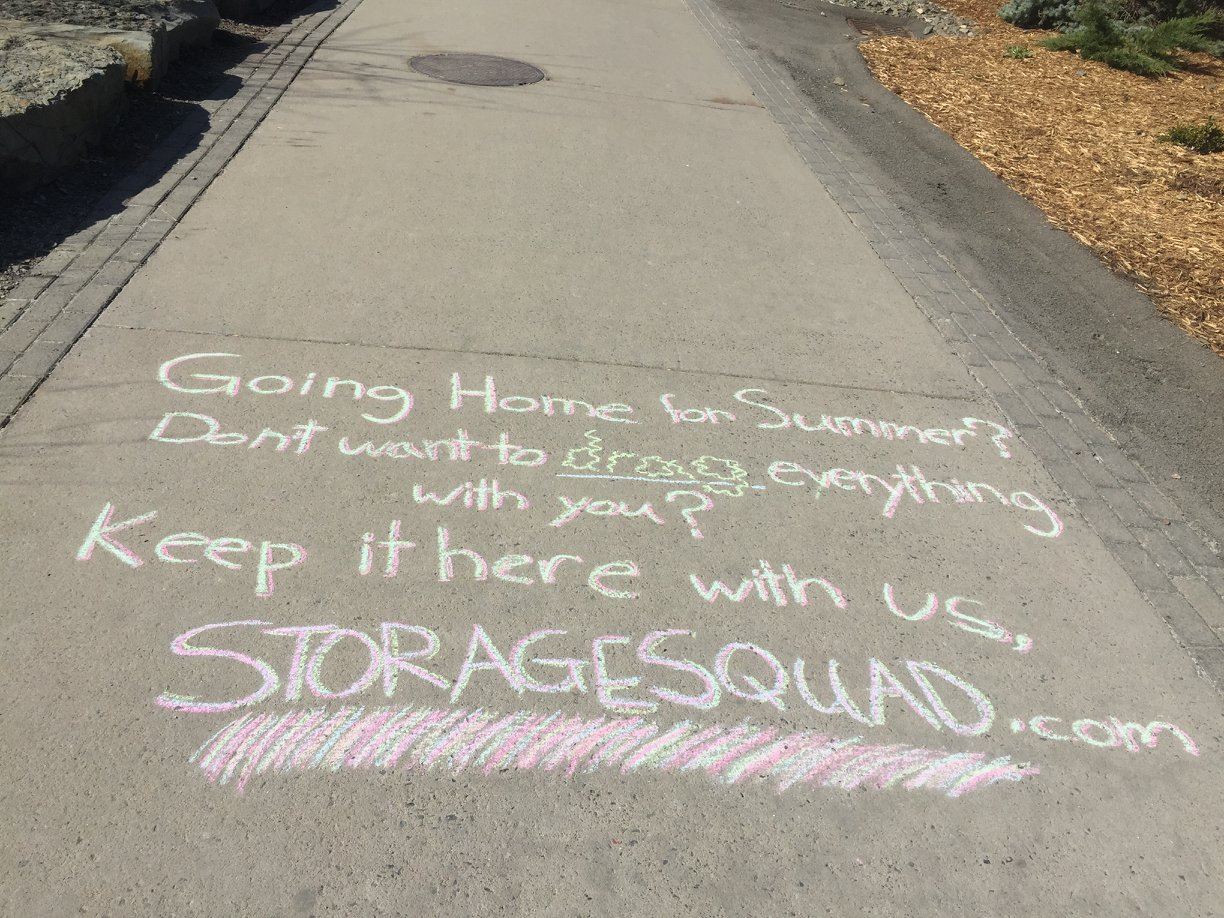 Going Home for Summer?
Don't want to drag everything
with you?
Keep it here with us,
STORAGESQUAD.com